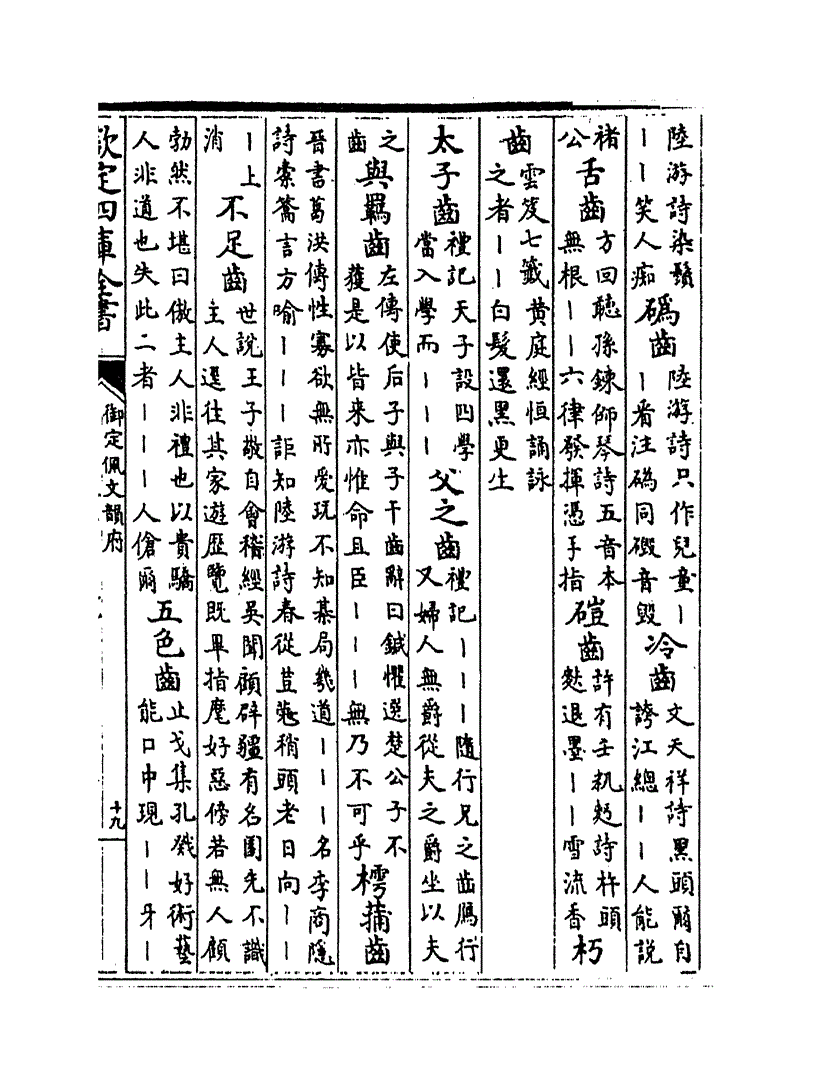 陸游詩染鬚
｜｜笑人痴
磆齒
陸游詩只作兒童｜
｜看注磆同磤音毀
冷齒
文天祥詩黑頭爾自
誇江總｜｜人能說
褚
公
舌齒
方回聽孫鍊師琴詩五音本
無根｜｜六律發揮憑手指
磑齒
許有壬䴬麨詩杵頭
麩退墨｜｜雪流香
朽
齒
雲笈七籤黄庭經恒誦詠
之者｜｜白髮還黑更生
太子齒
禮記天子設四學
當入學而｜｜｜
父之齒
禮記｜｜｜隨行兄之齒鴈行
又婦人無爵從夫之爵坐以夫
之
齒
與羈齒
左傳使后子與子干齒辭曰鍼懼選楚公子不
獲是以皆来亦惟命且臣｜｜｜無乃不可乎
樗蒱齒
晉書葛洪傳性寡欲無所愛玩不知棊局幾道｜｜｜名李商隱
詩索篙言方喻｜｜｜詎知陸游詩春從荳蔲稍頭老日向｜｜
｜上
消
不足齒
世說王子敬自會稽經吳聞顧辟疆有名園先不識
主人逕往其家遊歴覽既畢指麾好惡傍若無人顧
勃然不堪曰傲主人非禮也以貴驕
人非道也失此二者｜｜｜人傖爾
五色齒
止戈集孔癸好術藝
能口中現｜｜牙｜
欽定四庫全書
御定佩文韻府
十九